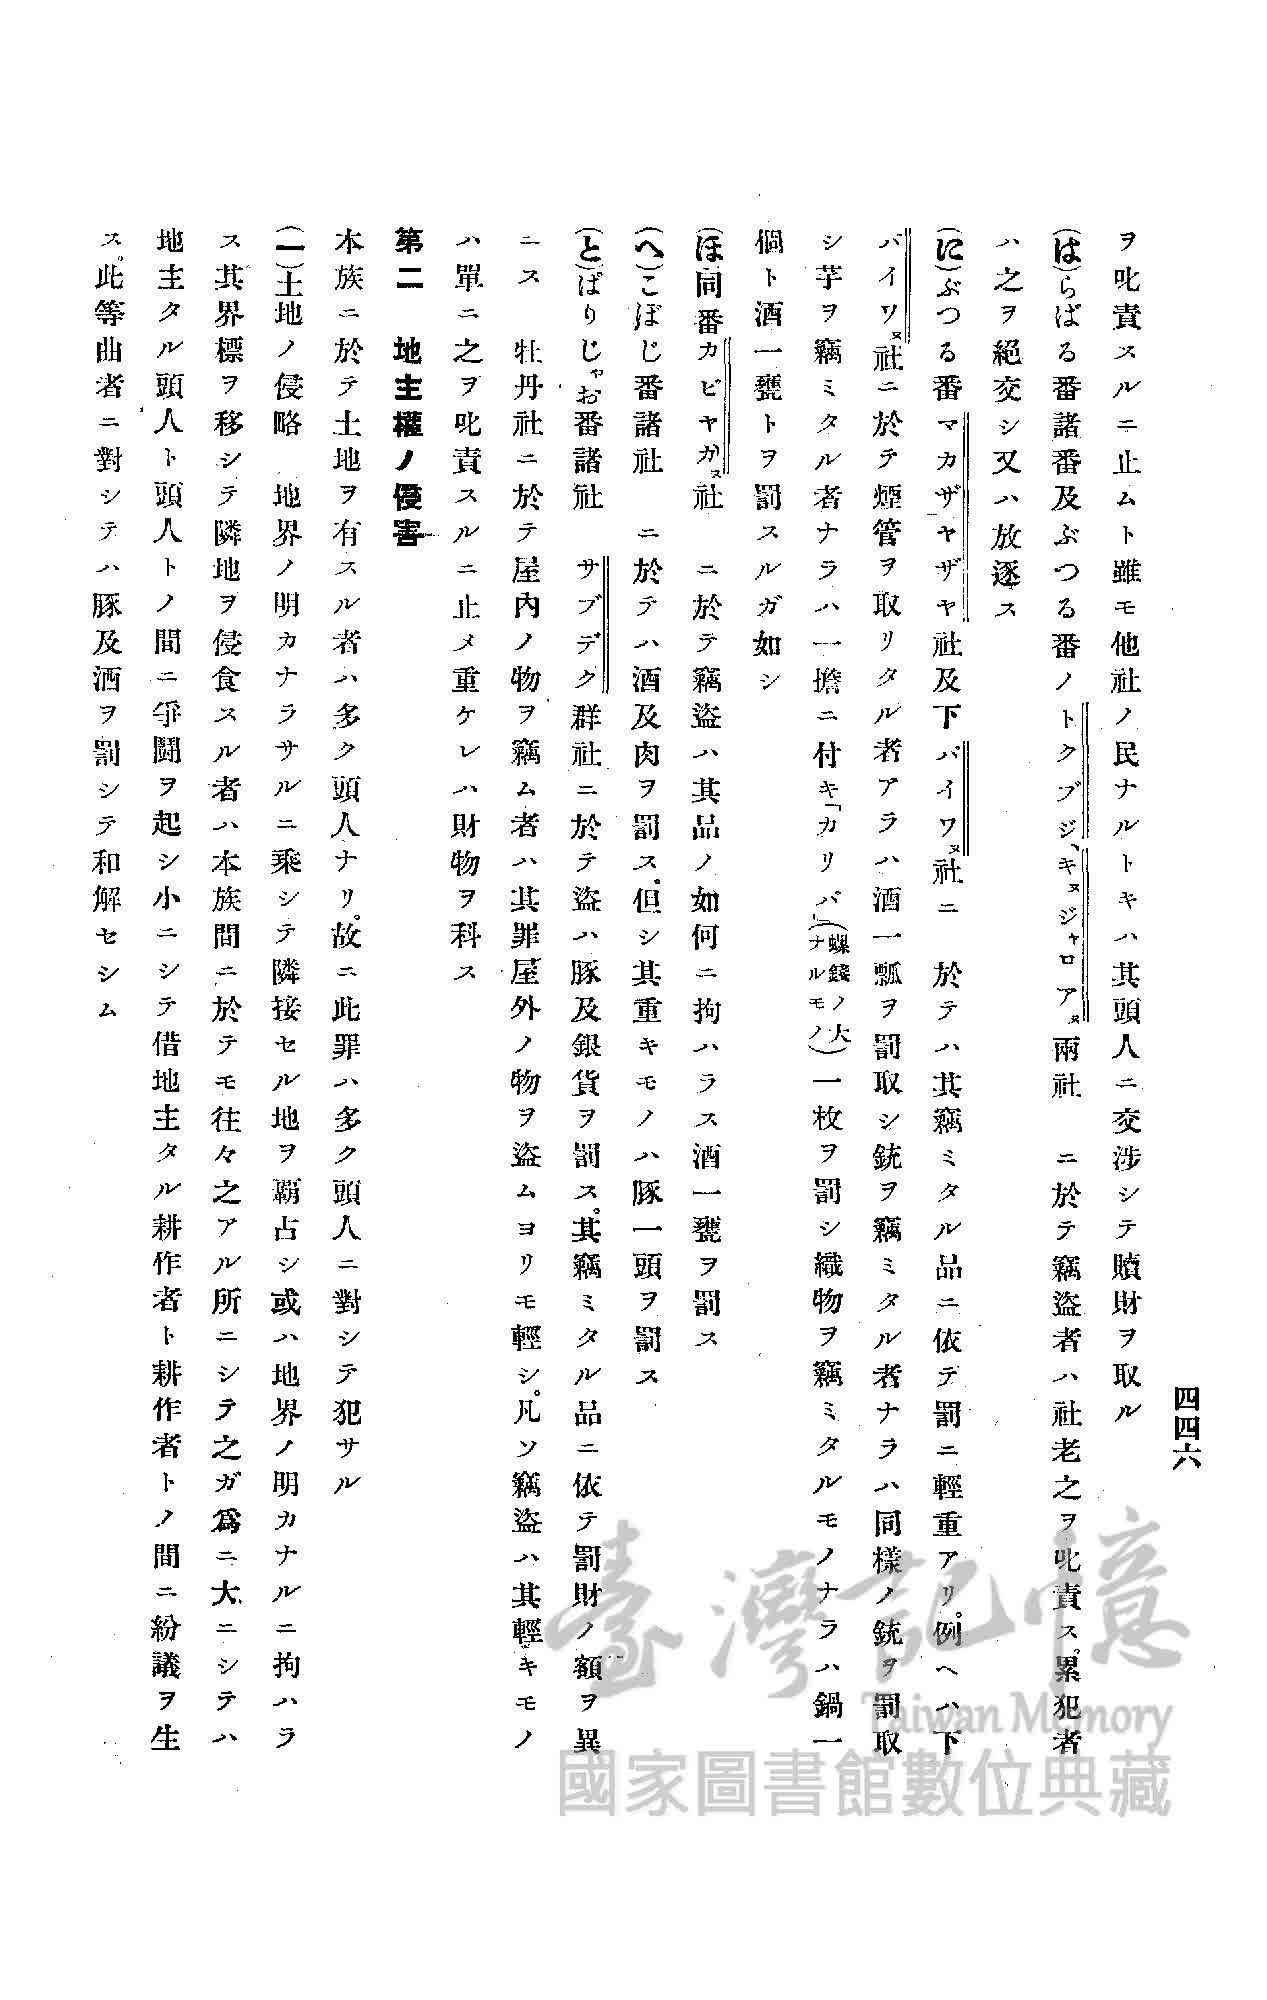 四四六
ヲ叱責スルニ止ムト雖モ他社ノ民ナルトキハ其頭人ニ交渉シテ贖財ヲ取ル
(は)らばる番諸番及ぶつる番ノトクブジ、キヌジャロアヌ兩社　ニ於テ竊盜者ハ社老之ヲ叱責ス。累犯者
ハ之ヲ絕交シ又ハ放逐ス
(に)ぶつる番マカザヤザヤ社及下バイワヌ社ニ　於テハ其竊ミタル品ニ依テ罰ニ輕重アリ。例ヘハ下
バイワヌ社ニ於テ煙管ヲ取リタル者アラハ酒一瓢ヲ罰取シ銃ヲ竊ミタル者ナラハ同樣ノ銃ヲ罰取
シ芋ヲ竊ミタル者ナラハ一擔ニ付キ「カリバ」(螺錢ノ大ナルモノ)一枚ヲ罰シ織物ヲ竊ミタルモノナラハ鍋一
個ト酒一甕トヲ罰スルガ如シ
(ほ)同番カビヤガヌ社　ニ於テ竊盜ハ其品ノ如何ニ拘ハラス酒一甕ヲ罰ス
(へ)こぼじ番諸社　ニ於テハ酒及肉ヲ罰ス。但シ其重キモノハ豚一頭ヲ罰ス
(と)ぱりじゃお番諸社　サブデク群社ニ於テ盜ハ豚及銀貨ヲ罰ス。其竊ミタル品ニ依テ罰財ノ額ヲ異
ニス　牡丹社ニ於テ屋內ノ物ヲ竊ム者ハ其罪屋外ノ物ヲ盜ムヨリモ輕シ。凡ソ竊盜ハ其輕キモノ
ハ單ニ之ヲ叱責スルニ止メ重ケレハ財物ヲ科ス
第二　地主權ノ侵害
本族ニ於テ土地ヲ有スル者ハ多ク頭人ナリ。故ニ此罪ハ多ク頭人ニ對シテ犯サル
(一)土地ノ侵略　地界ノ明カナラサルニ乘シテ隣接セル地ヲ覇占シ或ハ地界ノ明カナルニ拘ハラ
ス其界標ヲ移シテ隣地ヲ侵食スル者ハ本族間ニ於テモ往々之アル所ニシテ之ガ爲ニ大ニシテハ
地主タル頭人ト頭人トノ間ニ爭鬪ヲ起シ小ニシテ借地主タル耕作者ト耕作者トノ間ニ紛議ヲ生
ス。此等曲者ニ對シテハ豚及酒ヲ罰シテ和解セシム
臺灣記憶
Taiwan Memory
國家圖書館數位典藏